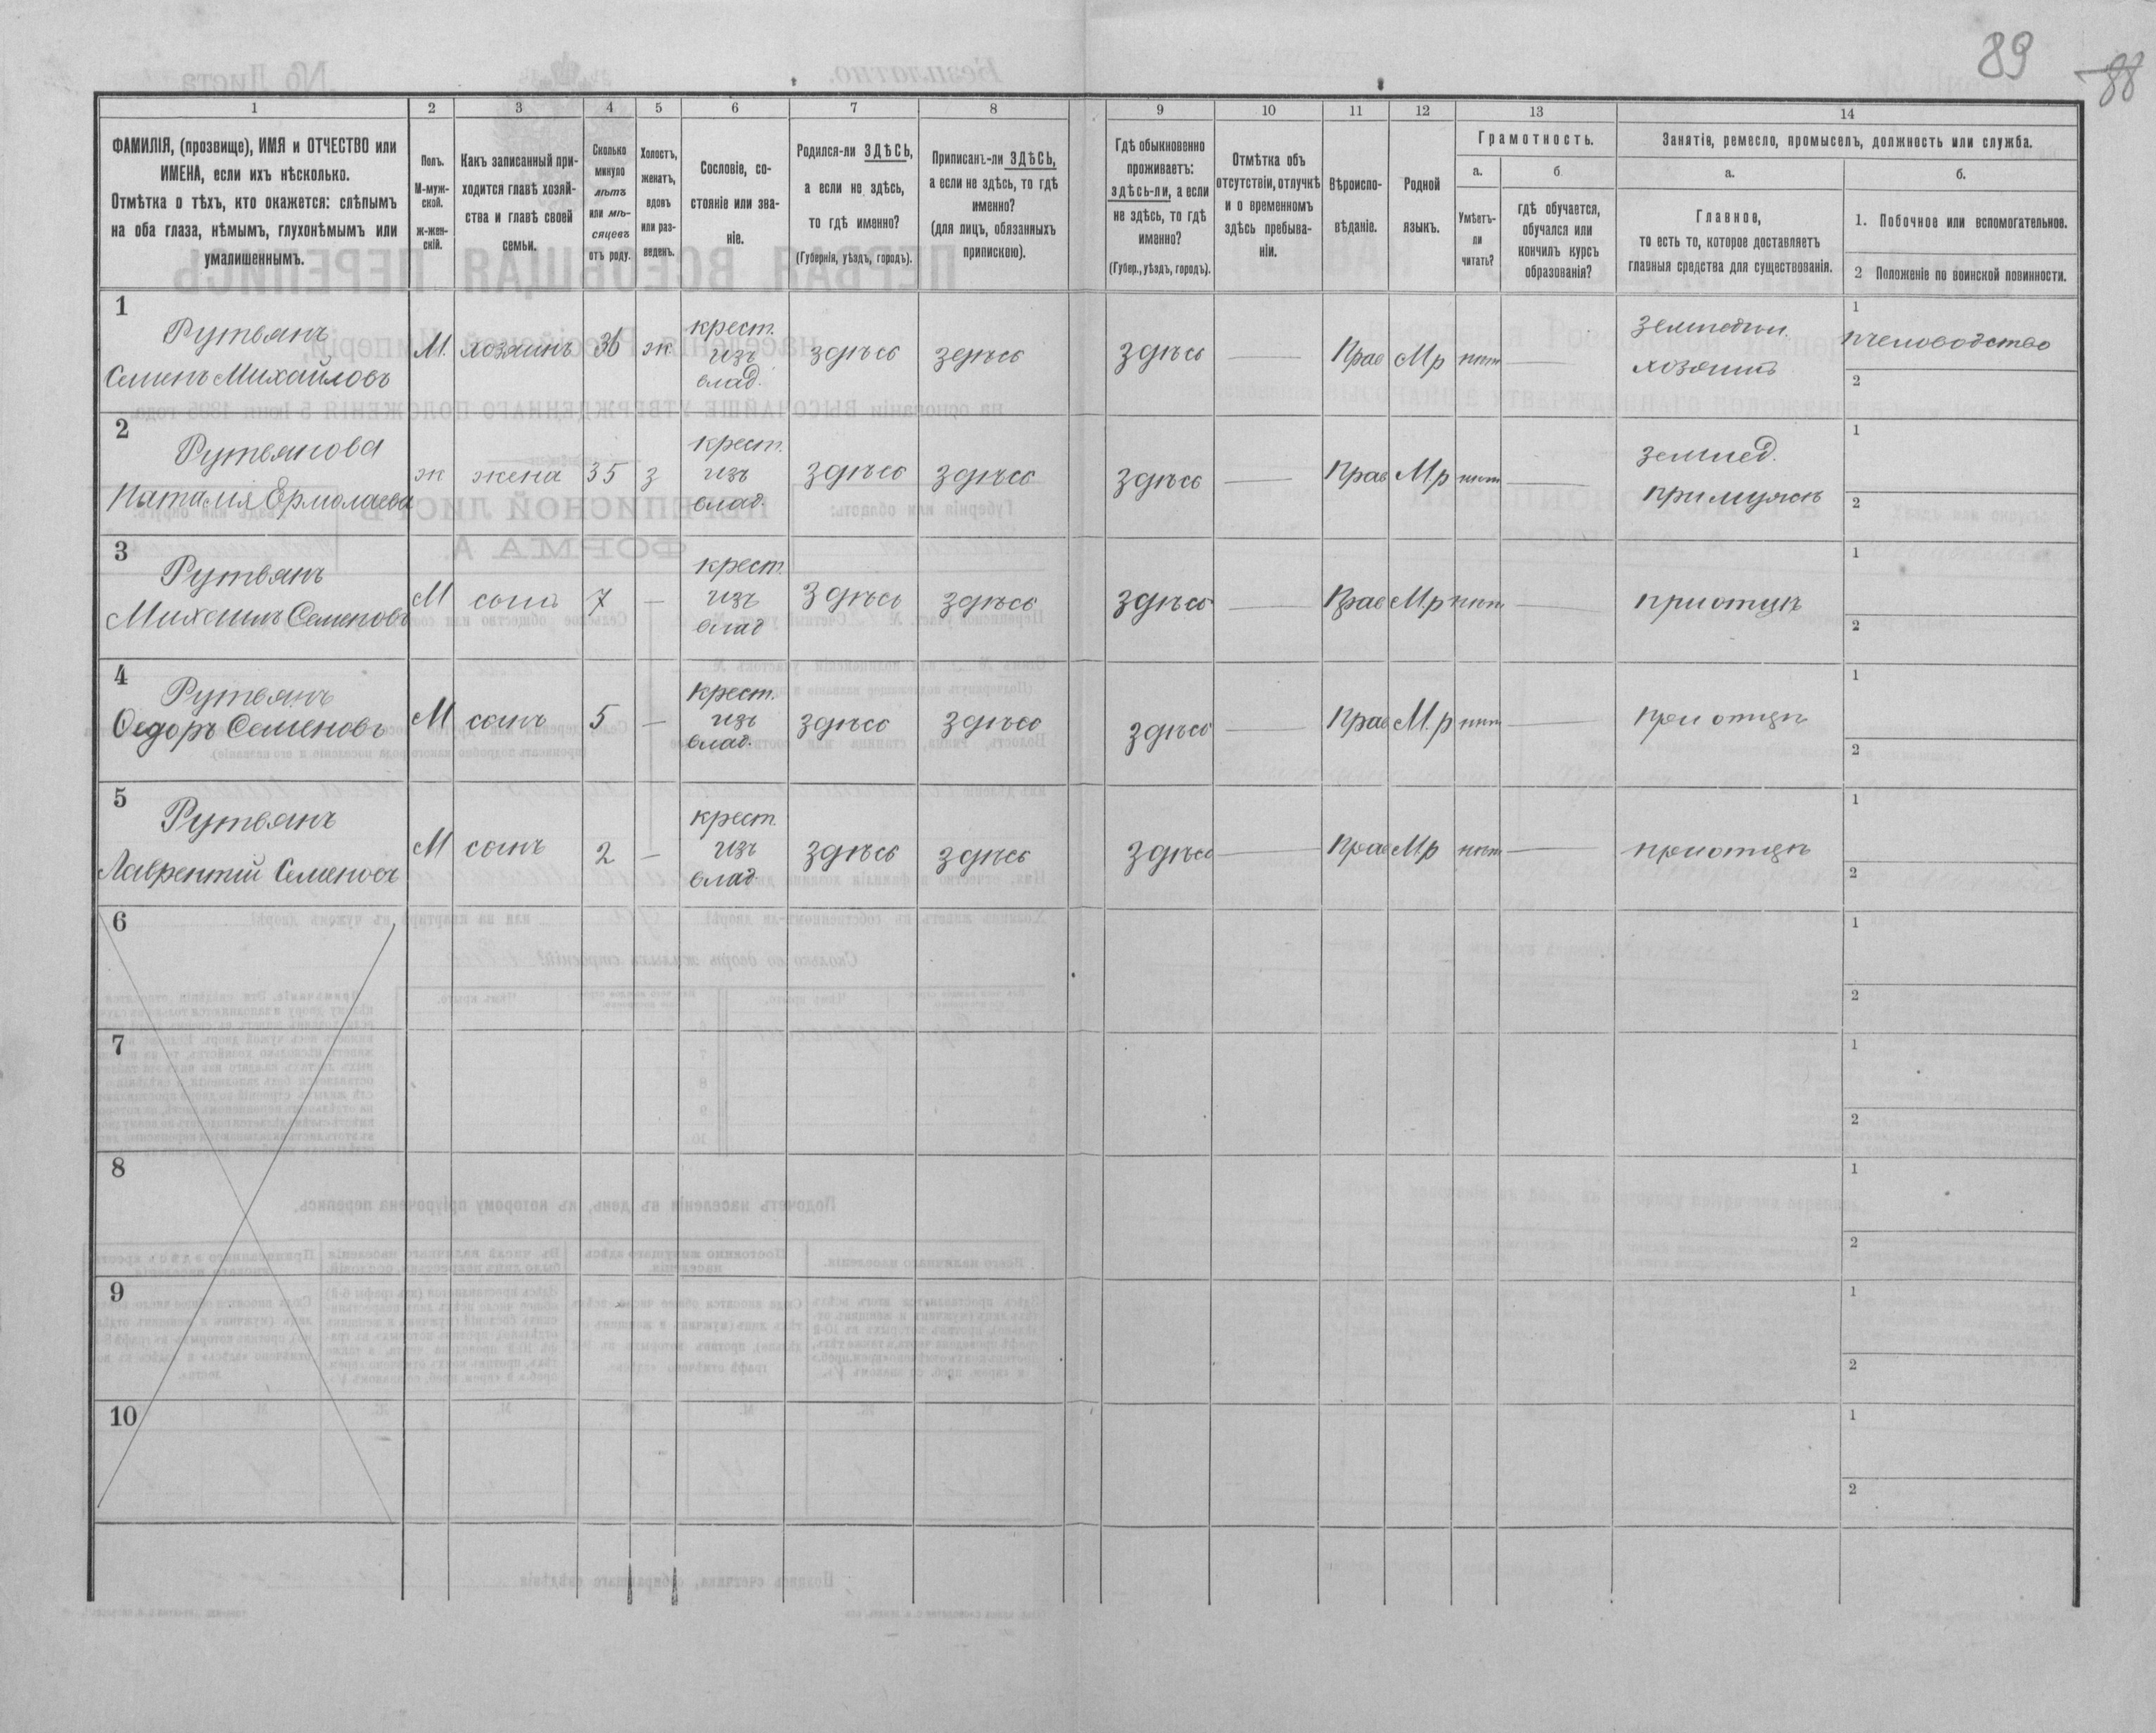 89
88
1
2
3
4
5
6
7
8
9
10
11
12
13
14
ФАМИЛІЯ, (прозвище), ИМЯ и ОТЧЕСТВО или
ИМЕНА, если ихъ нѣсколько.
Отмѣтка о тѣхъ, кто окажется: слѣпымъ
на оба глаза, нѣмымъ, глухонѣмымъ или
умалишеннымъ.
Полъ.
М-муж-
ской.
Ж-жен-
скій.
Какъ записанный при-
ходится главѣ хозяй-
ства и главѣ своей
семьи.
Сколько
минуло
лѣтъ
или мѣ-
сяцевъ
отъ роду.
Холостъ,
женатъ,
вдовъ
или раз-
веденъ.
Сословіе, со-
стояніе или зва-
ніе.
Родился-ли ЗДѢСЬ,
а если не здѣсь,
то гдѣ именно?
(Губернія, уѣздъ, городъ).
Приписанъ-ли ЗДѢСЬ,
а если не здѣсь, то гдѣ
именно?
(для лицъ, обязанныхъ
припискою).
Гдѣ обыкновенно
проживаетъ:
здѣсь-ли, а если
не здѣсь, то гдѣ
именно?
(Губер., уѣздъ, городъ).
Отмѣтка объ
отсутствіи, отлучкѣ
и о временномъ
здѣсь пребыва-
ніи.
Вѣроиспо-
вѣданіе.
Родной
языкъ.
Грамотность.
а.
Умѣетъ-
ли
читать?
б
гдѣ обучается,
обучался или
кончилъ курсъ
образованія?
Занятіе, ремесло, промыселъ, должность или служба.
а.
Главное,
то есть то, которое доставляетъ
главныя средства для существованія.
б.
1. Побочное или вспомогательное.
2 Положеніе по воинской повинности.
1
Рутвянъ
Семенъ Михайловъ
М.
хозяинъ
36
ж
крест.
изъ
влад.
здѣсь
здѣсь
здѣсь
Прав
Мр
нѣт
хозяинъ
1
пчеловодство
2
2
Рутвянова
Наталия Ермолаева
ж
жена
35
з
крест.
изъ
влад.
здѣсь
здѣсь
здѣсь
Прав
Мр
нѣт
землед.
при мужѣ
1
2
3
Рутвянъ
Михаилъ Семеновъ
М
сынъ
7
—
крест.
изъ
влад
здѣсь
здѣсь
здѣсь
Прав
М.р
нѣт
при отцѣ
1
2
4
Рутвянъ
Ѳедоръ Семеновъ
М
сынъ
5
—
крест.
изъ
влад.
здѣсь
здѣсь
здѣсь
Прав
М.р
нѣт
при отцѣ
1
2
5
Рутвянъ
Лаврентий Семеновъ
М
сынъ
2
—
крест
изъ
влад.
здѣсь
здѣсь
здѣсь
Прав
Мр
нѣт
при отцѣ
1
2
6
1
2
7
1
2
8
1
2
9
1
2
10
1
2